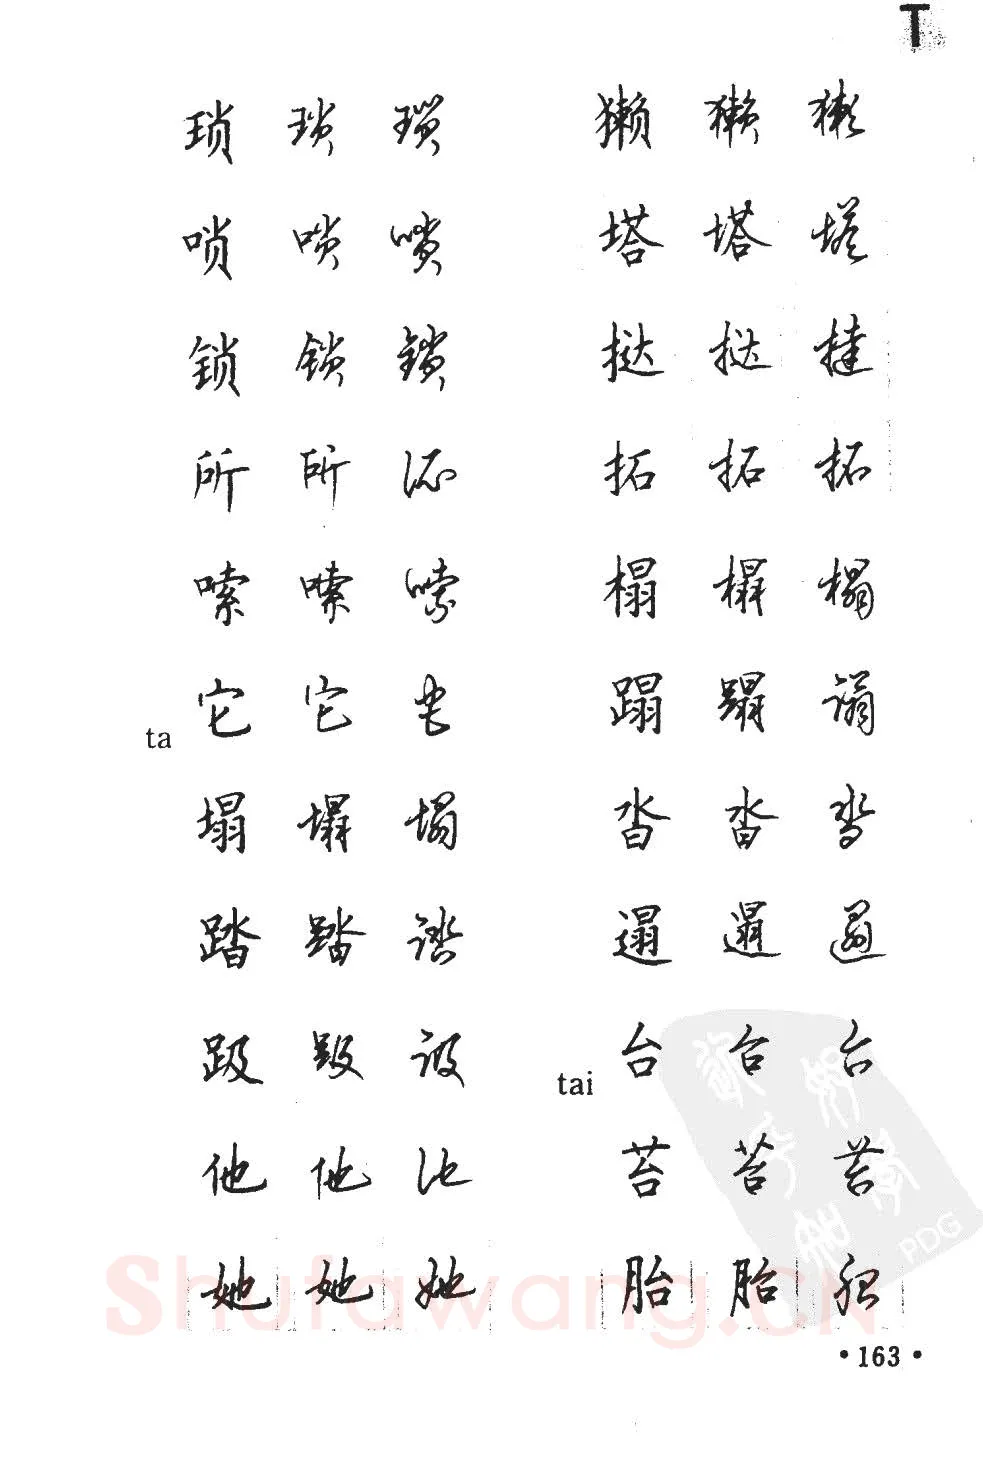 T
琐 琐 琐
唢 唢 唢
锁 锁 锁
所 所 所
嗦 嗦 嗦
ta 它 它 它
塌 塌 塌
踏 踏 踏
趿 趿 趿
他 他 他
她 她 她
獭 獭 獭
塔 塔 塔
挞 挞 挞
拓 拓 拓
榻 榻 榻
蹋 蹋 蹋
沓 沓 沓
遢 遢 遢
tai 台 台 台
苔 苔 苔
胎 胎 胎
PDG
Shufawang.CN
·163·